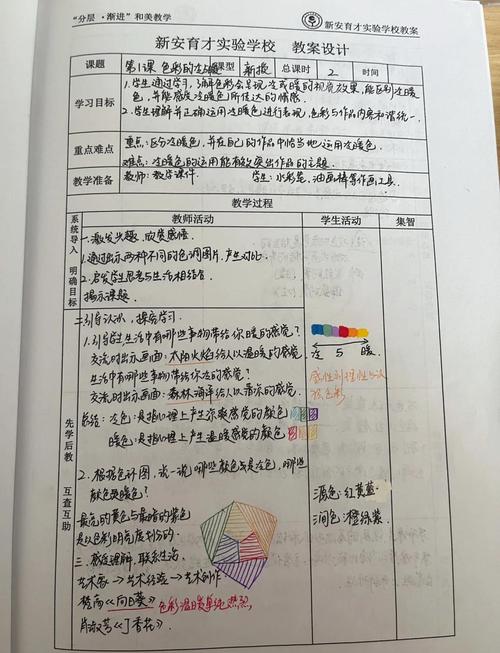 “分层·渐进”和美教学
新安育才实验学校教案
新安育才实验学校 教案设计
课题 第1课 色彩的冷与暖 课型 新授 总课时 2 时间
学习目标 1.学生通过学习,了解色彩会呈现冷或暖的视觉效果,能区分冷暖
色,并能感受冷暖色所传达的情感。
2.学生理解并正确运用冷暖色进行表现,色彩与作品内容和谐统一.
重点难点 重点:区分冷暖色,并在自己的作品中恰当地运用冷暖色。
难点:冷暖色的运用能有效突出作品的主题.
教学准备 教师:教学课件. 学生:水彩笔、油画棒等作画工具.
教学过程
教师活动 学生活动 集智
系统导入 明确目标
一.激发兴趣,欣赏感悟.
1.通过出示两种不同的色调图片,产生对比.
2.启发学生思考与生活相结合.
揭示课题.
先学后教 互查互助
二.引导认识,探究学习.
1.引导学生生活中有哪些事物带给你暖的感觉?
交流时出示画面:太阳火焰给人以温暖的感觉
生活中有哪些事物带给你冷的感觉?
交流时出示画面:森林海洋给人以清凉的感觉
冷 与 暖.
感性到理性与认
识色彩
总结:冷色:是指心理上产生凉爽感觉的颜色
暖色:是指心理上产生温暖感觉的颜色
2.根据色环图,说一说哪些颜色是冷色,哪些
颜色是暖色?
原色:红黄蓝
间色:橙绿紫.
最亮的黄色与最暗的紫色
是以色彩明亮度划分的.
三.感受理解,联系生活.
艺术家→艺术经验→艺术创作
梵高《向日葵》 色彩温暖单纯热烈,
肖淑芳《丁香花》